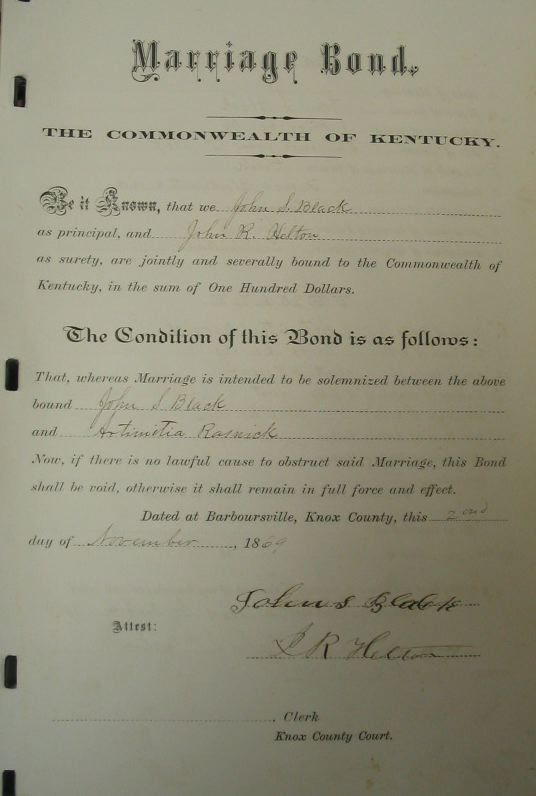 Marriage Bond.
THE COMMONWEALTH OF KENTUCKY.
Be it Known, that we John S. Black
as principal, and John R. Helton
as surety, are jointly and severally bound to the Commonwealth of
Kentucky, in the sum of One Hundred Dollars.
The Condition of this Bond is as follows:
That, whereas Marriage is intended to be solemnized between the above
bound John S Black
and Artimitia Rasnick
Now, if there is no lawful cause to obstruct said Marriage, this Bond
shall be void, otherwise it shall remain in full force and effect.
Dated at Barboursville, Knox County, this 2ond
day of November, 1869
John S Black
Attest:
J R Helton
, Clerk
Knox County Court.